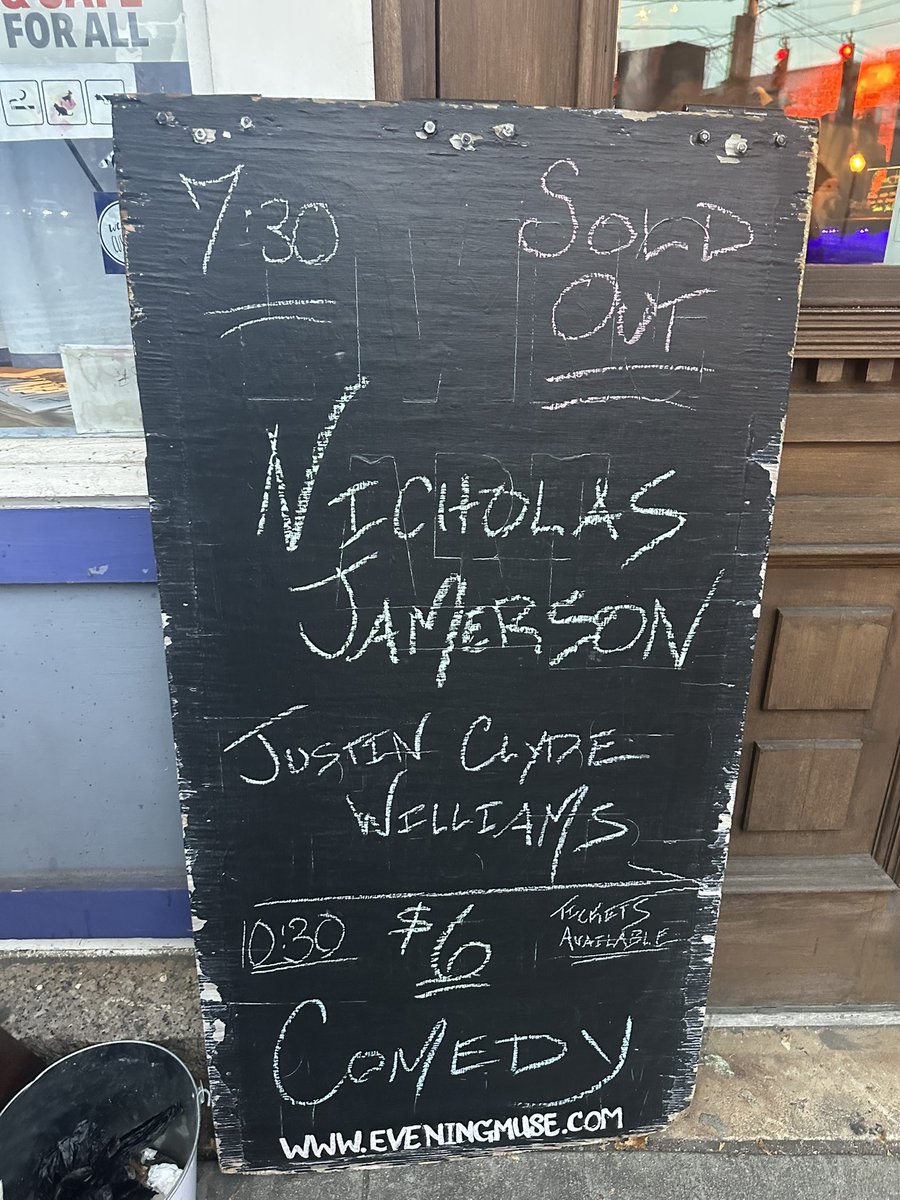 & SAFE
FOR ALL
7:30
SOLD
OUT
NICHOLAS
JAMERSON
JUSTIN CLYDE
WILLIAMS
10:30 $6 TICKETS
AVAILABLE
COMEDY
WWW.EVENINGMUSE.COM